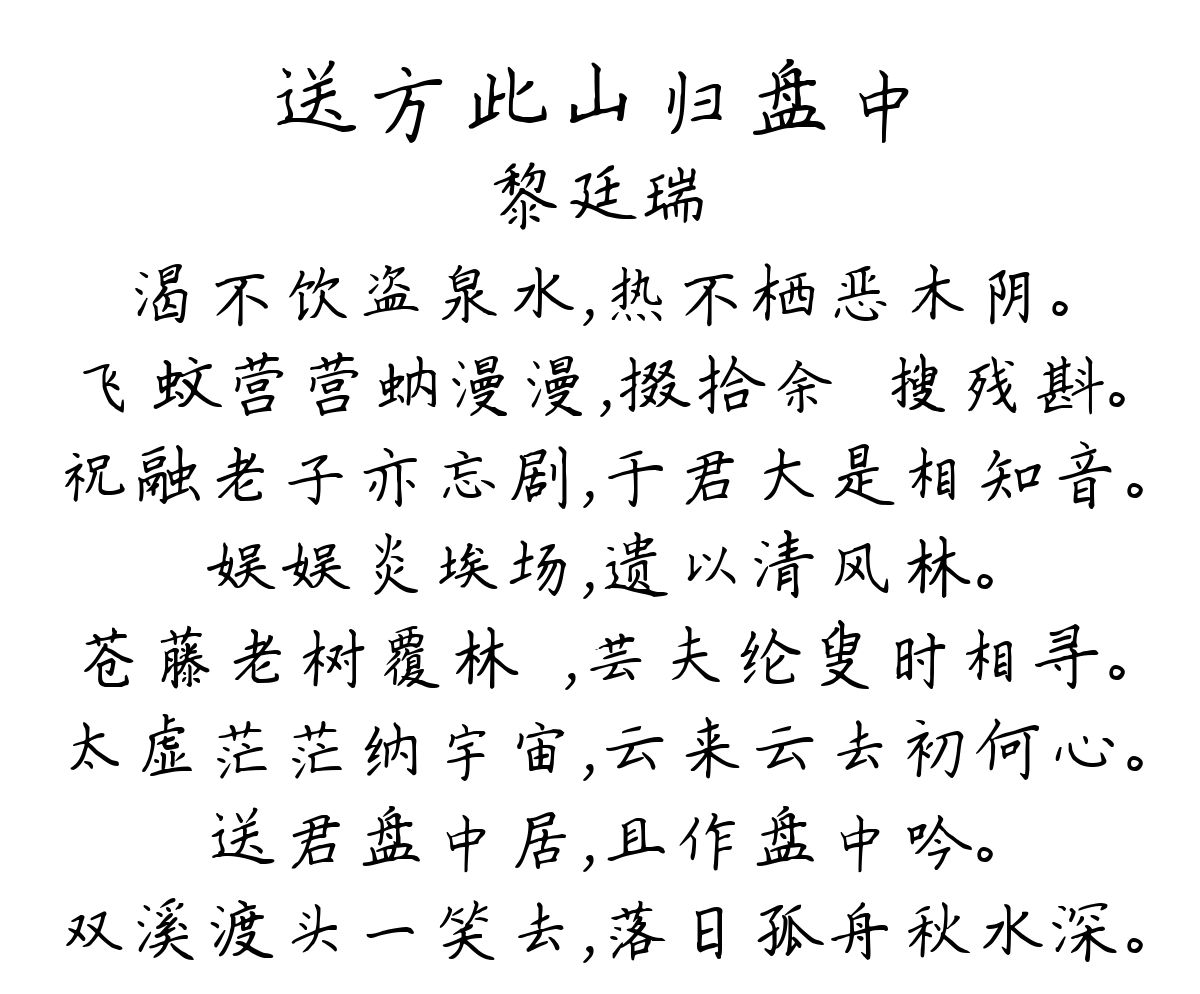 送方此山归盘中
黎廷瑞
渴不饮盗泉水,热不栖恶木阴。
飞蚊营营蚋漫漫,掇拾余 搜残斟。
祝融老子亦忘剧,于君大是相知音。
娱娱炎埃场,遗以清风林。
苍藤老树覆林 ,芸夫纶叟时相寻。
太虚茫茫纳宇宙,云来云去初何心。
送君盘中居,且作盘中吟。
双溪渡头一笑去,落日孤舟秋水深。